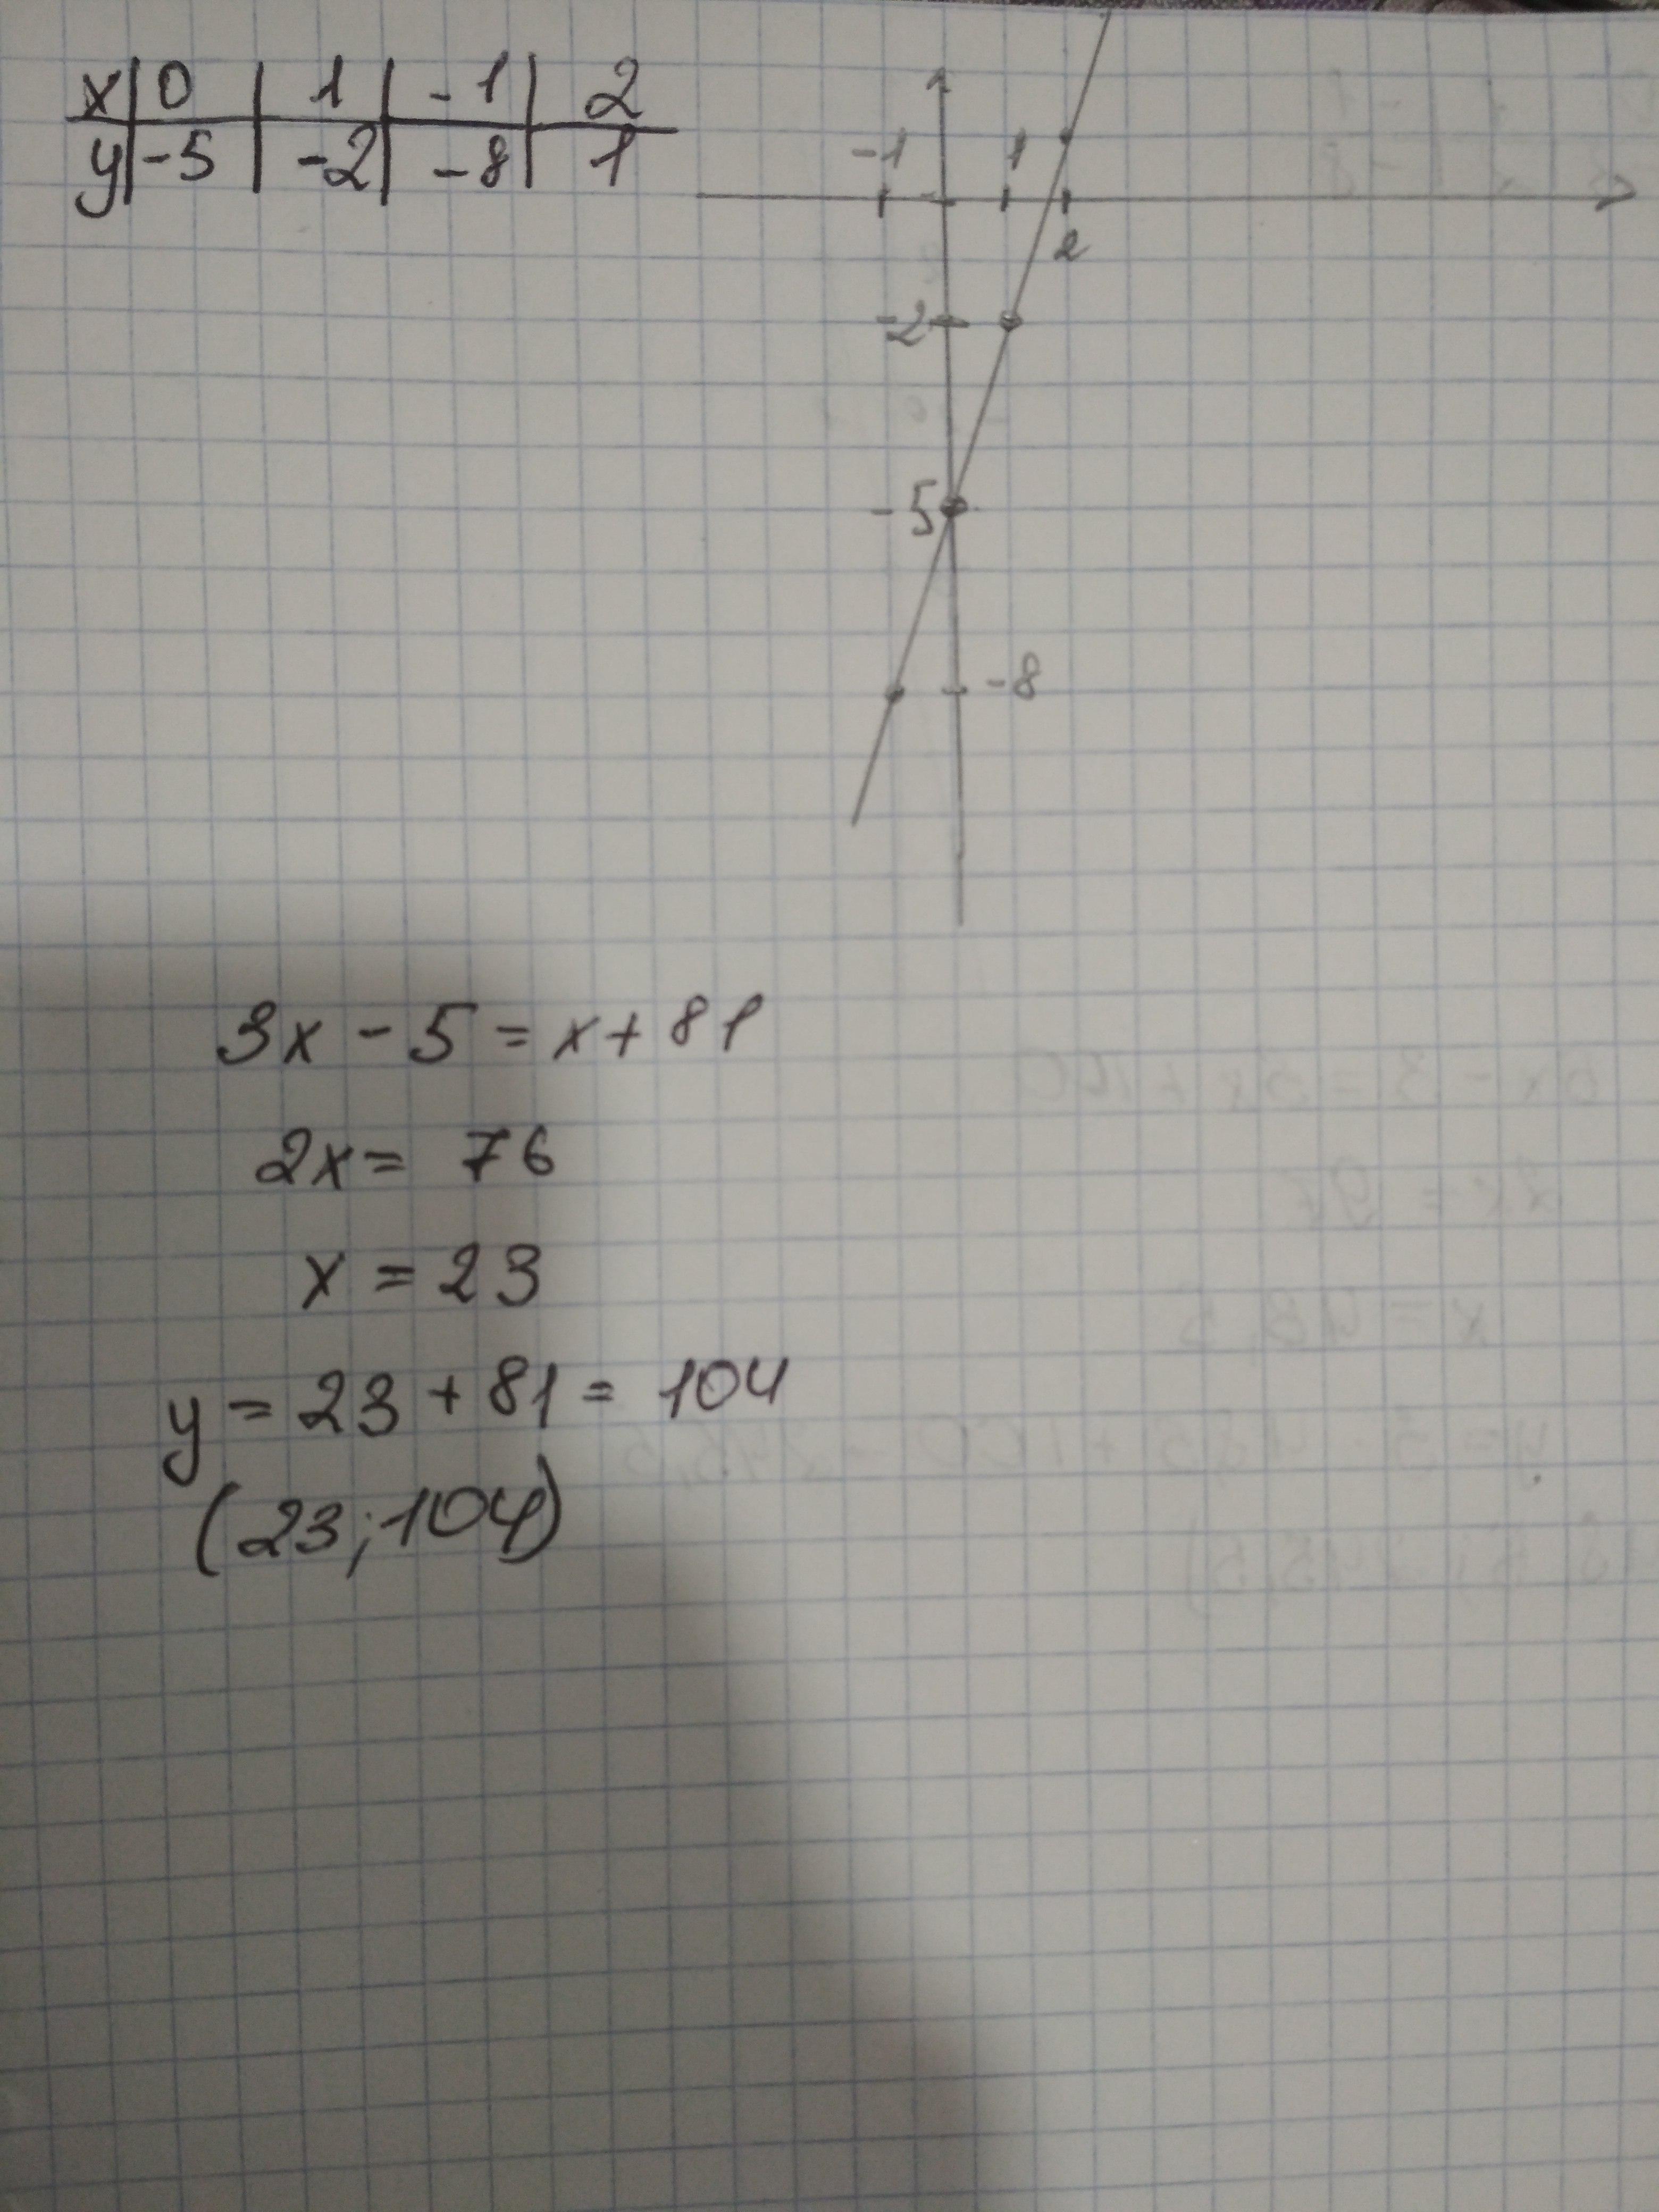 x 0 1 -1 2
y -5 -2 -8 1
-1 1
2
-2
-5
-8
3x - 5 = x + 81
2x = 76
x = 23
y = 23 + 81 = 104
(23; 104)